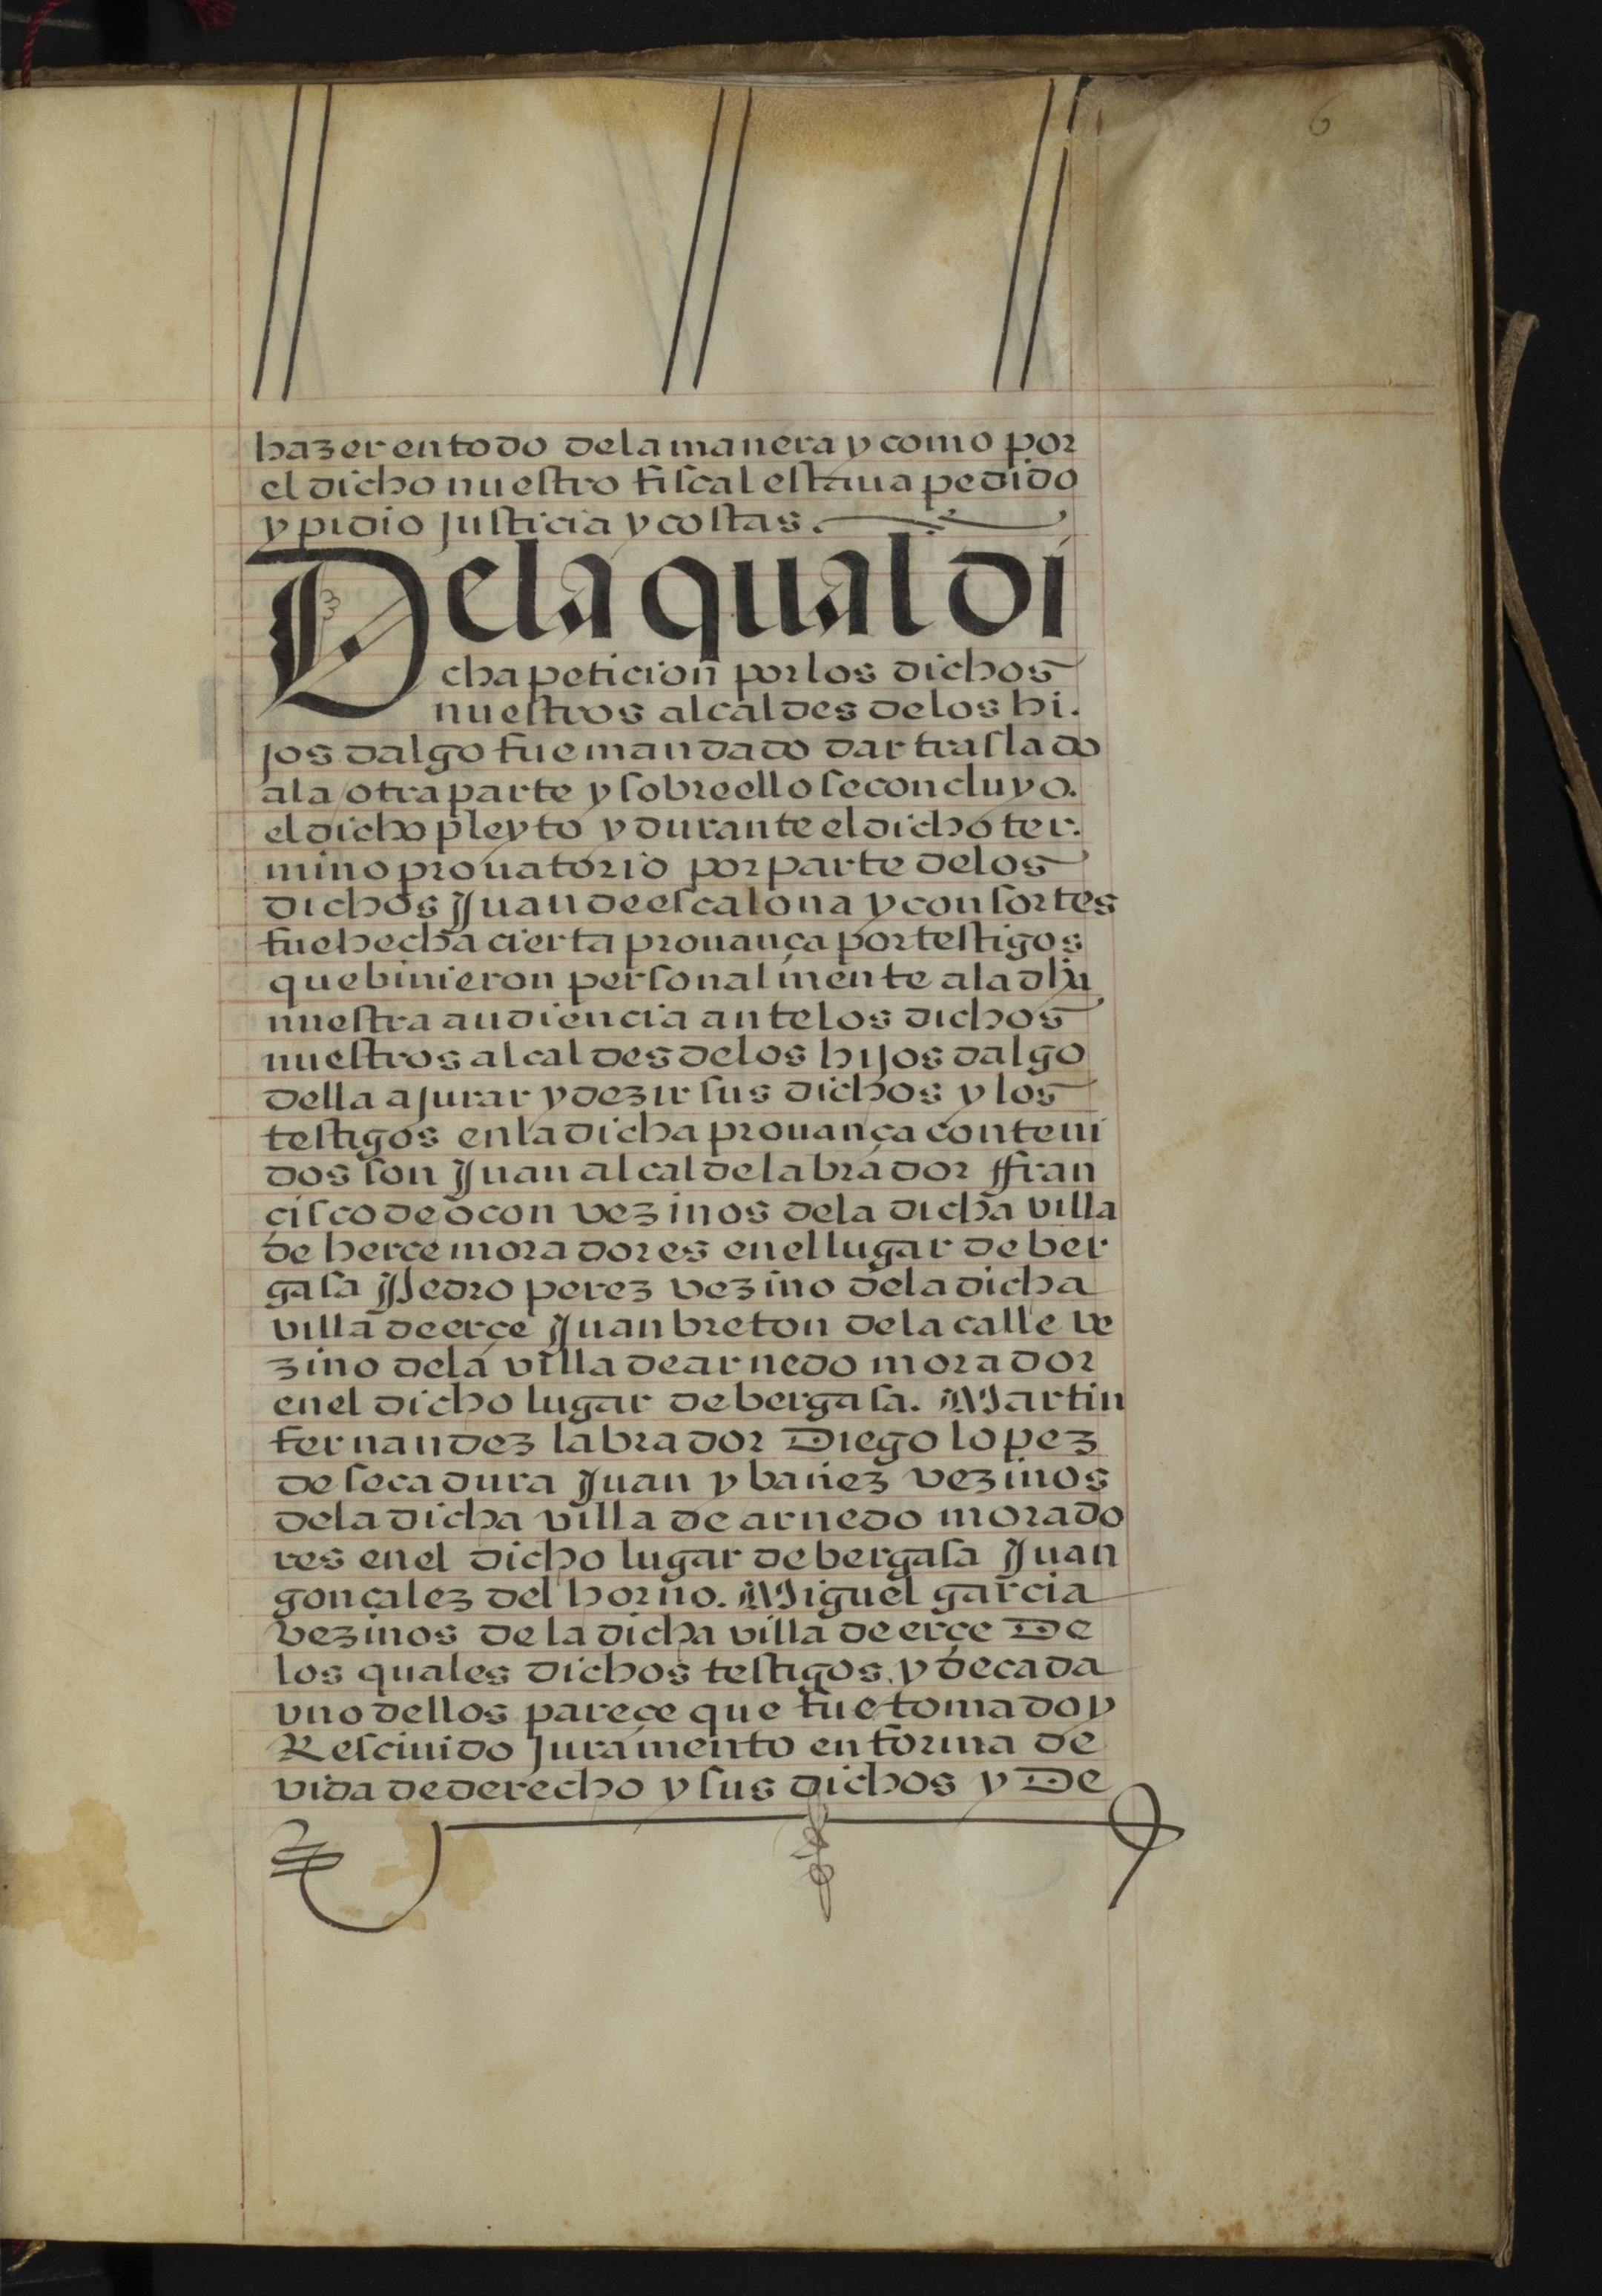 6
hazer en todo dela manera y como por
el dicho nuestro fiscal estaua pedido
y pidio justicia y costas.
Dela qual di
cha peticion por los dichos
nuestros alcaldes delos hi.
jos dalgo fue mandado dar traslado
ala otra parte y sobre ello se concluyo.
el dicho pleyto y durante el dicho ter.
mino prouatorio por parte delos
dichos Juan de escalona y consortes
fue hecha cierta prouança por testigos
que binieron personalmente ala dha
nuestra audiencia ante los dichos
nuestros alcaldes delos hijos dalgo
della a jurar y dezir sus dichos y los
testigos en la dicha prouança conteni
dos son Juan alcalde labrador ffran
cisco de ocon vezinos dela dicha villa
de herce moradores en el lugar de ber
gasa Pedro perez vezino dela dicha
villa de erçe Juan breton dela calle ve
zino dela villa de arnedo morador
en el dicho lugar de bergasa. Martin
fernandez labrador Diego lopez
de secadura Juan ybañez vezinos
dela dicha villa de arnedo morado
res en el dicho lugar de bergasa Juan
gonçalez del horno. Miguel garcia
vezinos de la dicha villa de erçe De
los quales dichos testigos, y de cada
vno dellos pareçe que fue tomado y
Resciuido juramento en forma de
vida de derecho y sus dichos y De